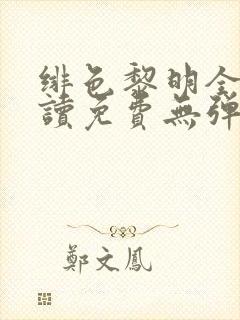 緋色黎明全
讀免費無彈
鄭文鳳